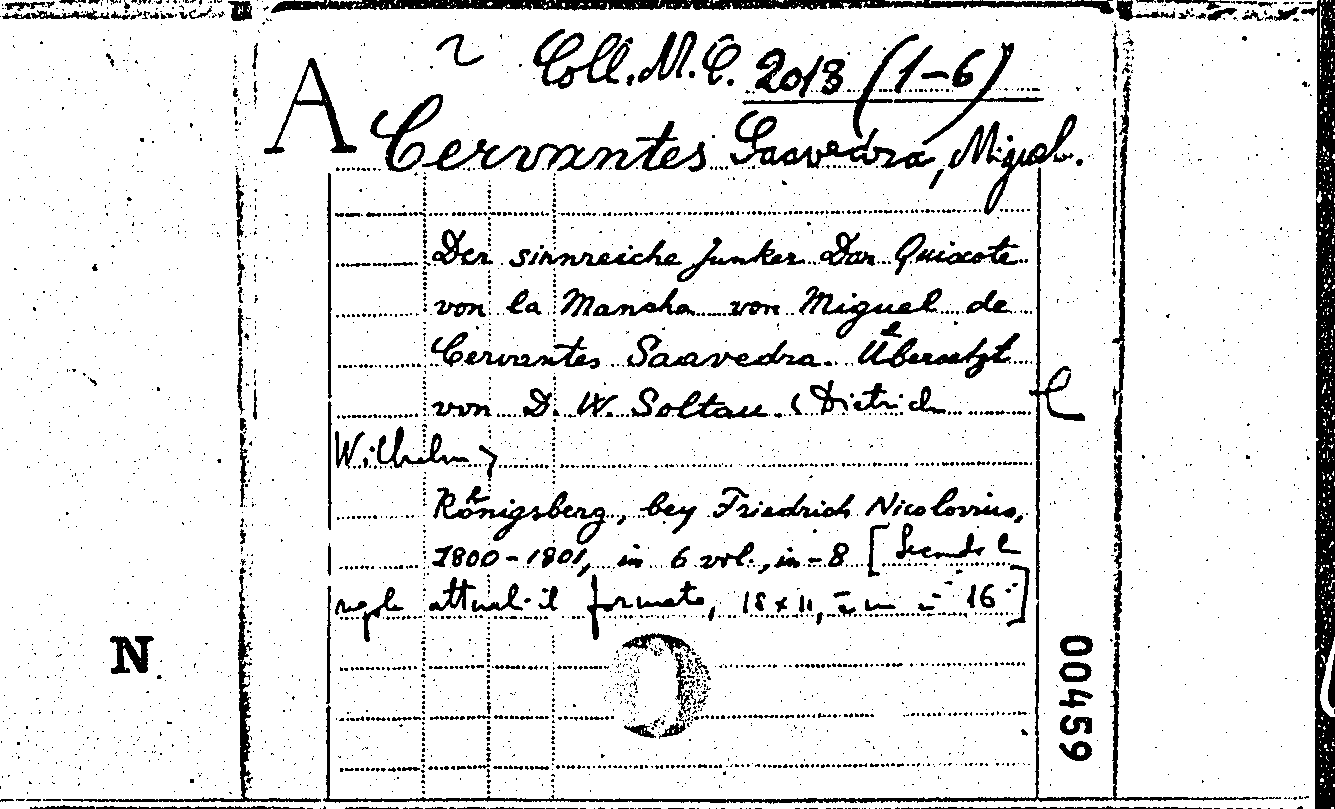 Coll. M. C. 2013 (1-6)
A Cervantes Saavedra, Miguel.
Der sinnreiche Junker Don Quixote
von la Mancha von Miguel de
Cervantes Saavedra. Übersetzt
von D. W. Soltau. (Dietrich
Wilhelm)
Königsberg, bey Friedrich Nicolovius,
1800-1801, in 6 vol., in-8 [Secondo le
regole attuali il formato, 18 x 11, è un in 16°]
N
00459